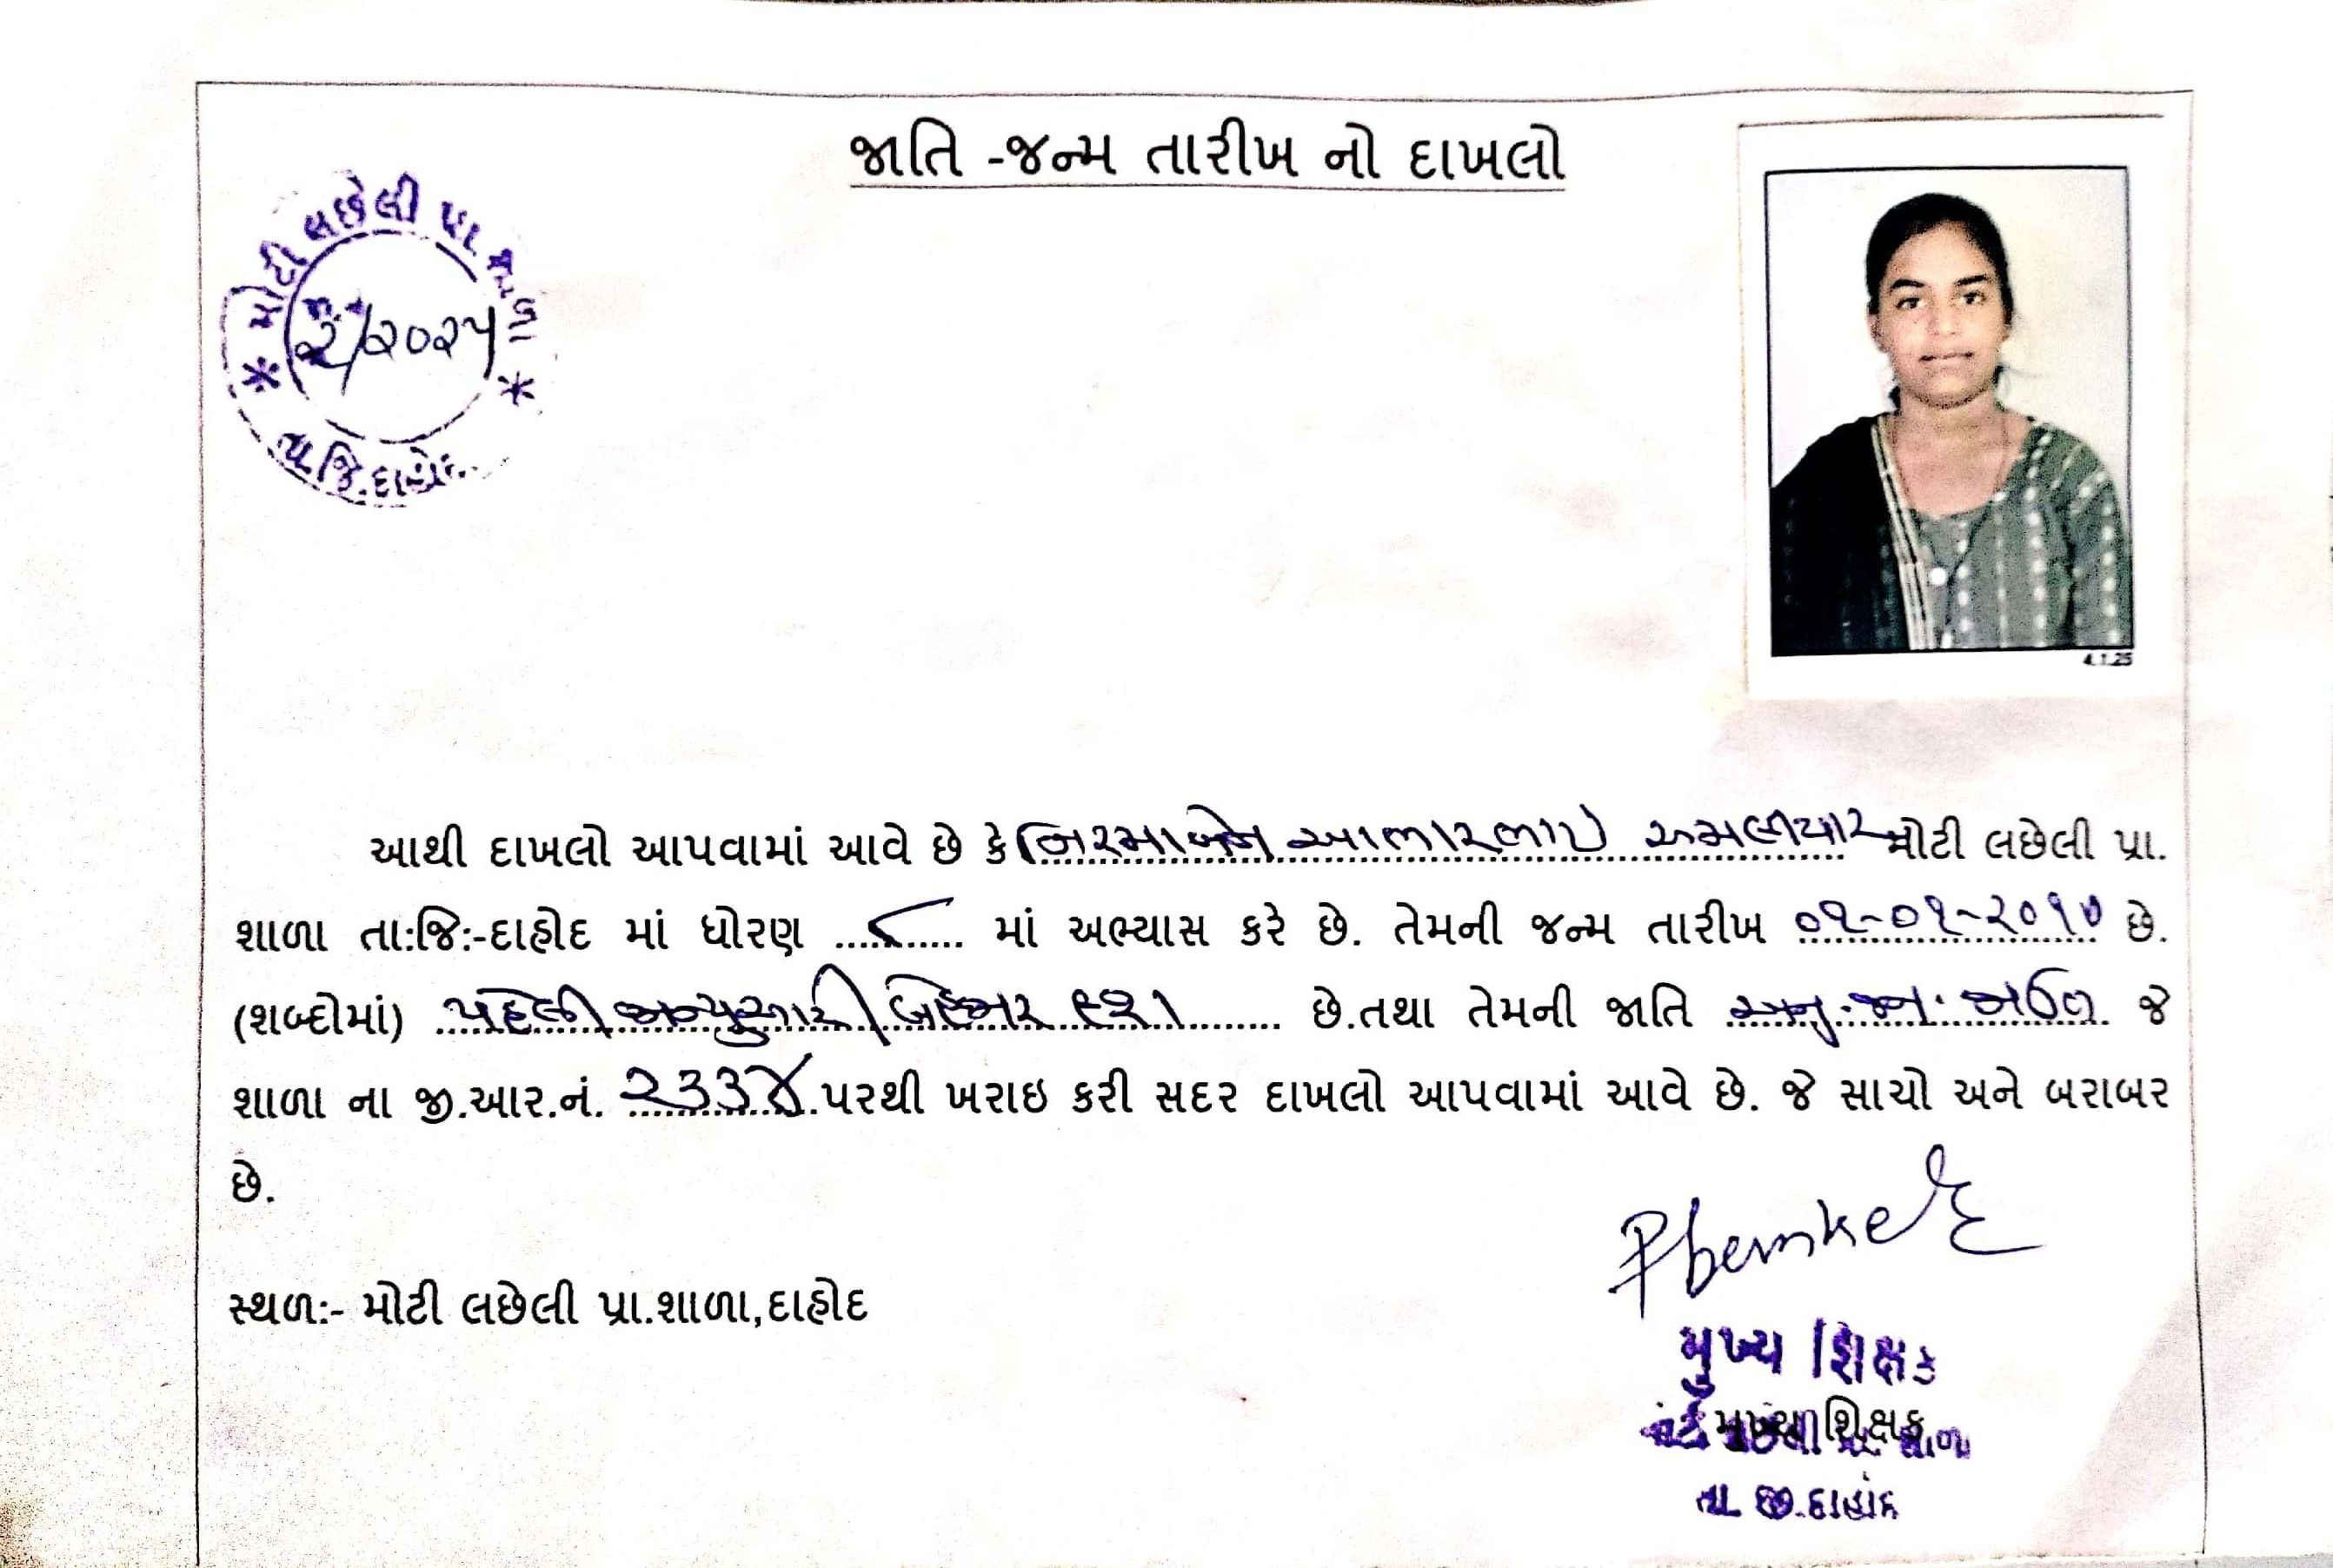 જાતિ -જન્મ તારીખ નો દાખલો
મોટી લછેલી પ્રા. શાળા
૨/૨૦૨૫
તા.જિ.દાહોદ.
4.1.25
આથી દાખલો આપવામાં આવે છે કે નિરમાબેન અમલીયાર મોટી લછેલી પ્રા.
શાળા તા:જિ:-દાહોદ માં ધોરણ ૮ માં અભ્યાસ કરે છે. તેમની જન્મ તારીખ ૦૧-૦૧-૨૦૧૧ છે.
(શબ્દોમાં) પહેલી જાન્યુઆરી બે હજાર છે.તથા તેમની જાતિ અનુ.જન. જે
શાળા ના જી.આર.નં. ૨૩૩૪ પરથી ખરાઇ કરી સદર દાખલો આપવામાં આવે છે. જે સાચો અને બરાબર
છે.
સ્થળ:- મોટી લછેલી પ્રા.શાળા,દાહોદ
મુખ્ય શિક્ષક
મુખ્ય શિક્ષક
તા.જી.દાહોદ